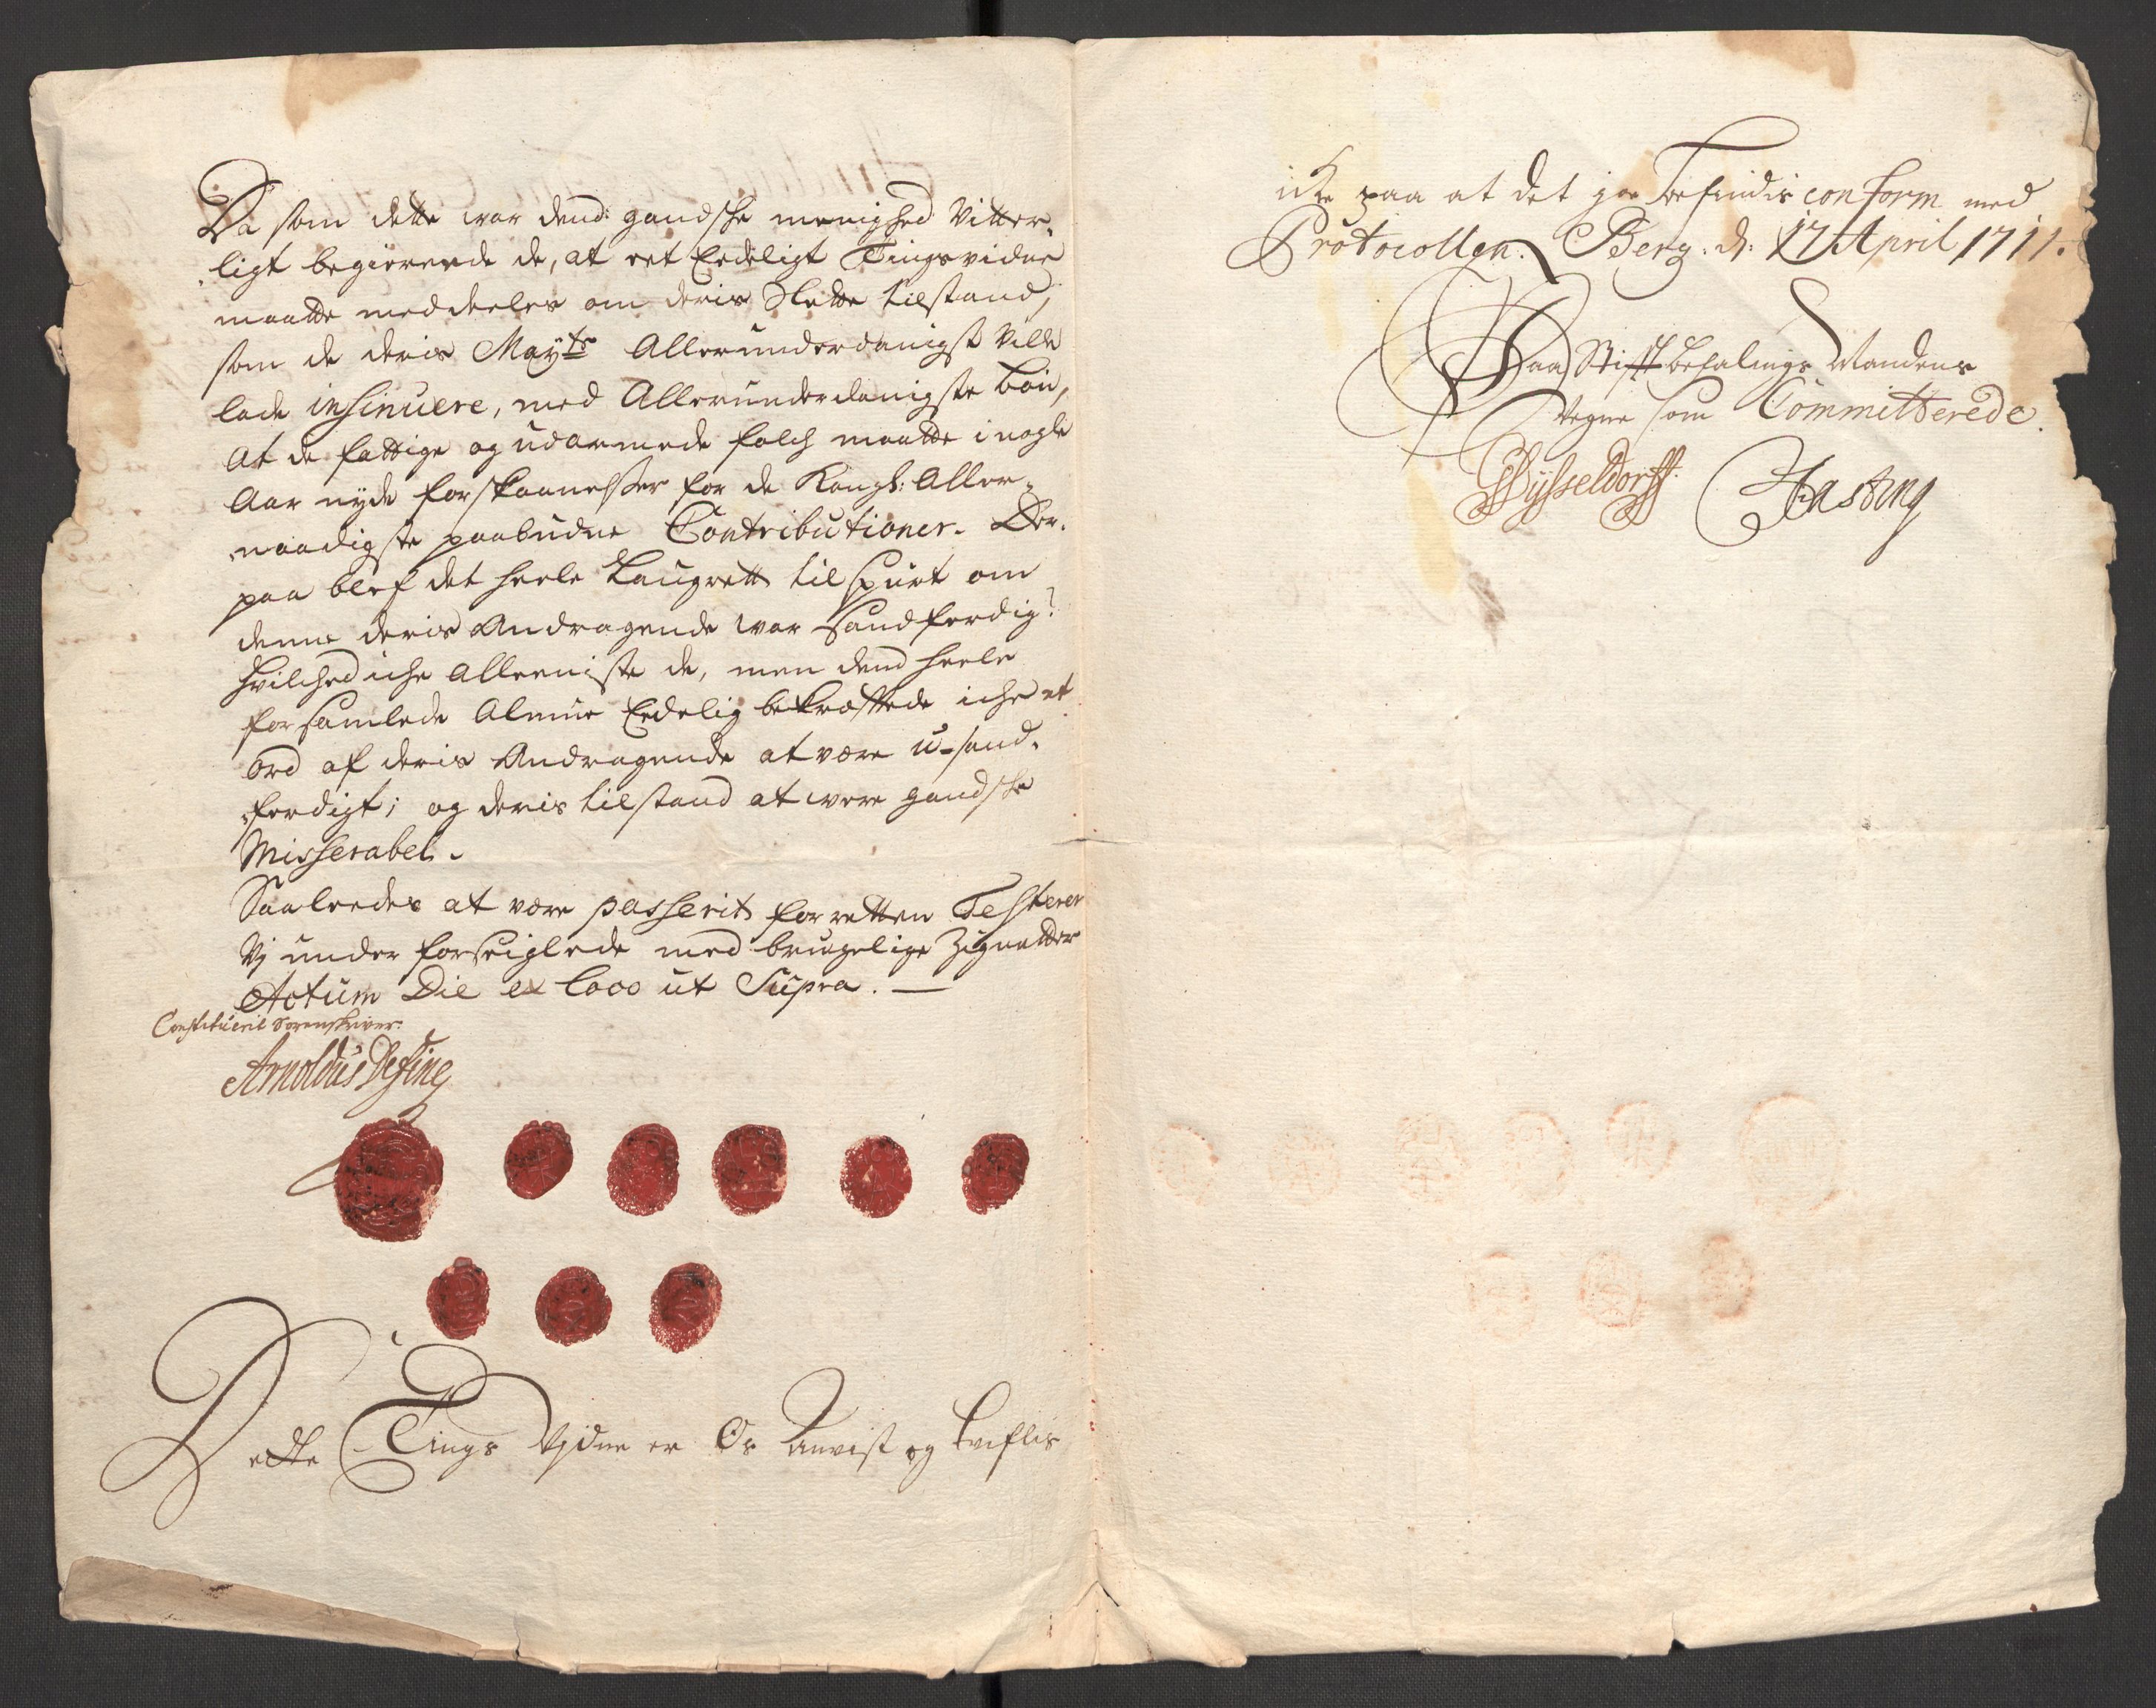 Da som dette war dend gandsche menighed Vitter,
ligt begiærede de, at eet Eedeligt Tingsvidne
maatte meddeeles om deris Slette tilstand,
som de deris Mayts Allerunderdanigst Ville
lade insinuere, med Allerunderdanigste bøn,
At de fattige og udarmede folch maatte i nogle
Aar nyde forskaanelsser for de Kongl: Aller,
naadigste paabudne Contributioner. Der,
paa blef det heele Laugrett tilspurt om
denne deris Andragende war sandferdig?
hvilched iche Alleeniste de, men dend heele
forsamlede Almue Eedelig bekræftede iche et
ord af deris Andragende at være u-sand,
ferdigt; og deris tilstand at were gandske
Misserabel.
Saaleedes at være passerit for retten Testerer
Vj under forseiglede med brugelige Zignetter
Actum Die et loco ut Supra. —
Constituerit Sorenskriver.
Arnoldus Define
Dette Tings Vidne er Os Anvist og tvifles
icke paa at det jo befindis conform med
Protocollen. Berg. d: 17 April 1711.
Paa Stiftbefalings Mandens
Vegne som Committerede.